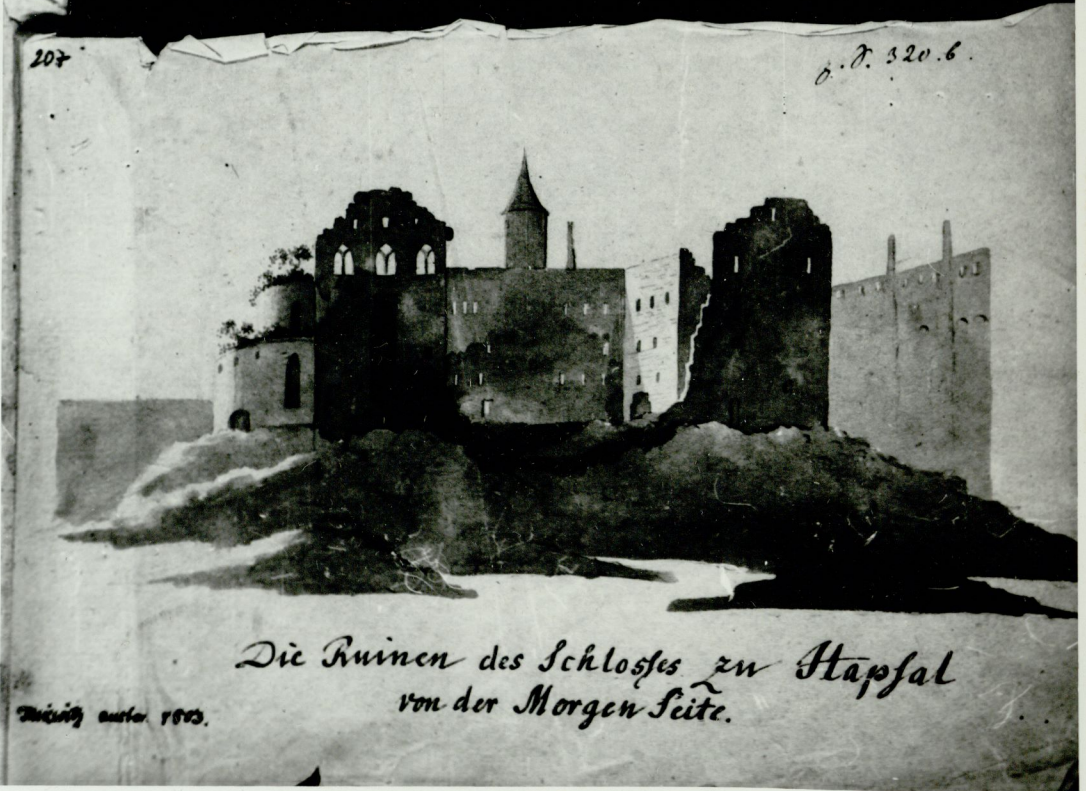 207
320.6.
Die Ruinen des Schlosses zu Hapsal
von der Morgen Seite.
1803.